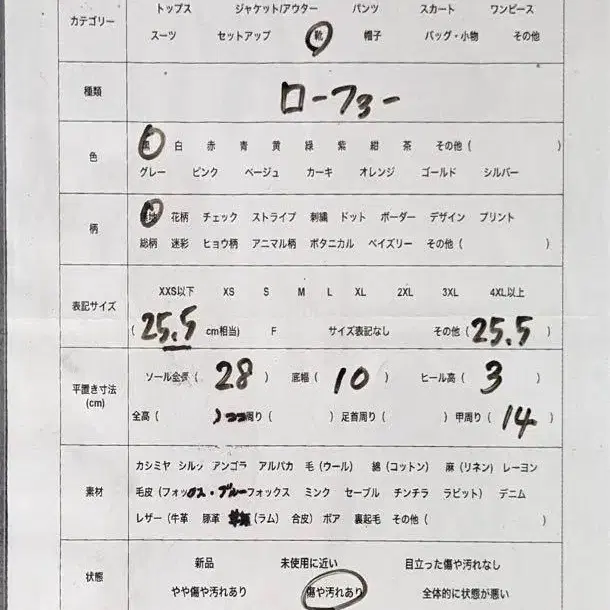 カテゴリー トップス ジャケット/アウター パンツ スカート ワンピース
スーツ セットアップ 靴 帽子 バッグ・小物 その他
種類 ローファー
色 黒 白 赤 青 黄 緑 紫 紺 茶 その他 ( )
グレー ピンク ベージュ カーキ オレンジ ゴールド シルバー
柄 無地 花柄 チェック ストライプ 刺繍 ドット ボーダー デザイン プリント
総柄 迷彩 ヒョウ柄 アニマル柄 ボタニカル ペイズリー その他 ( )
表記サイズ XXS以下 XS S M L XL 2XL 3XL 4XL以上
( 25.5 cm相当) F サイズ表記なし その他 ( 25.5 )
平置き寸法 (cm) ソール全長 ( 28 ) 底幅 ( 10 ) ヒール高 ( 3 )
全高 ( ) 周り ( ) 足首周り ( ) 甲周り ( 14 )
素材 カシミヤ シルク アンゴラ アルパカ 毛 (ウール) 綿 (コットン) 麻 (リネン) レーヨン
毛皮 (フォックス・ブルーフォックス ミンク セーブル チンチラ ラビット) デニム
レザー (牛革 豚革 (ラム) 合皮) ボア 裏起毛 その他 ( )
状態 新品 未使用に近い 目立った傷や汚れなし
やや傷や汚れあり 傷や汚れあり 全体的に状態が悪い